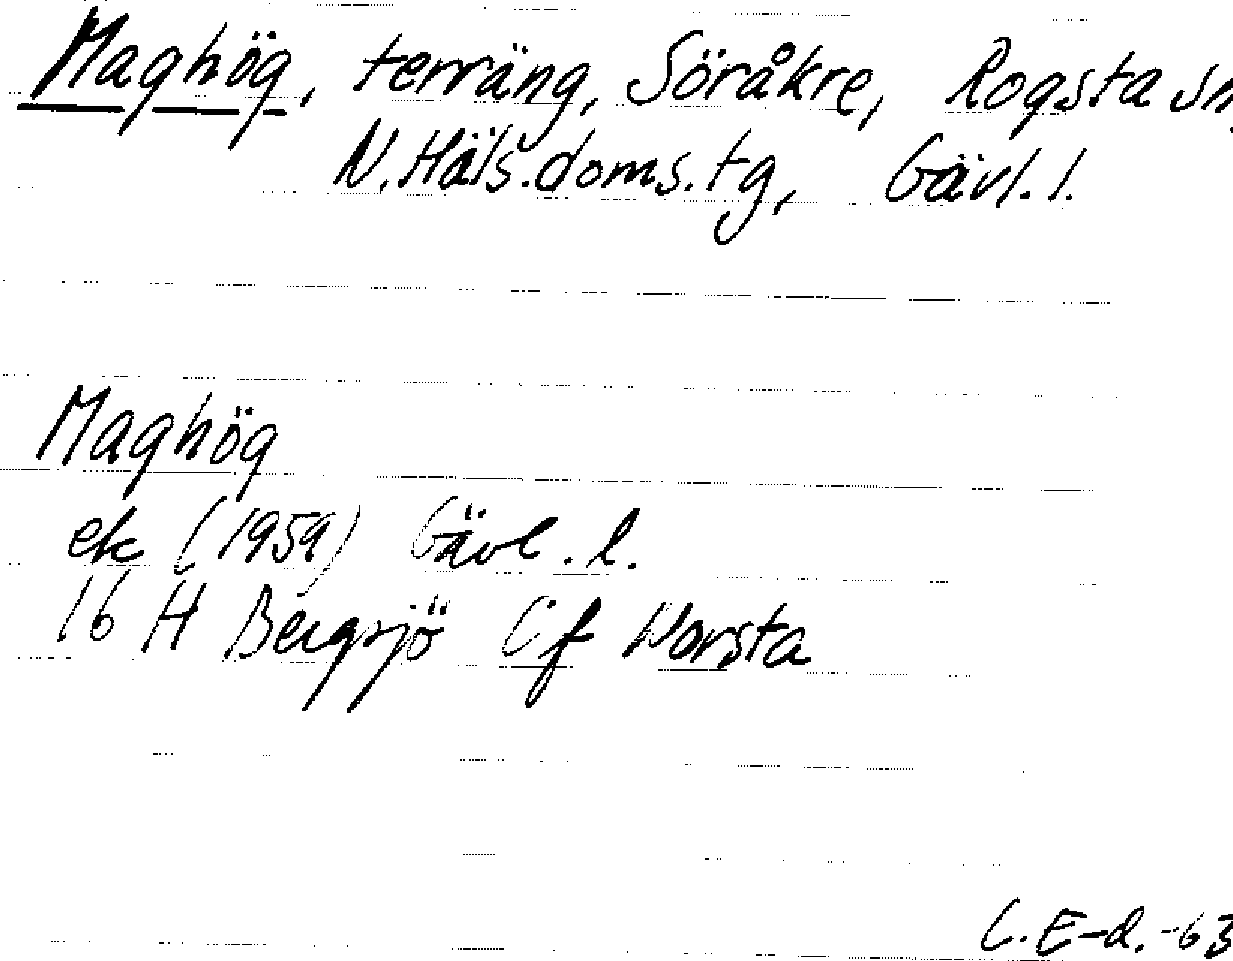 Maghög, terräng, Söråkre, Rogsta sn,
N.Häls.doms.tg, Gävl.l.
Maghög
ek (1959) Gävl.l.
16 H Bergsjö Cf Norsta
C.E-d.-63